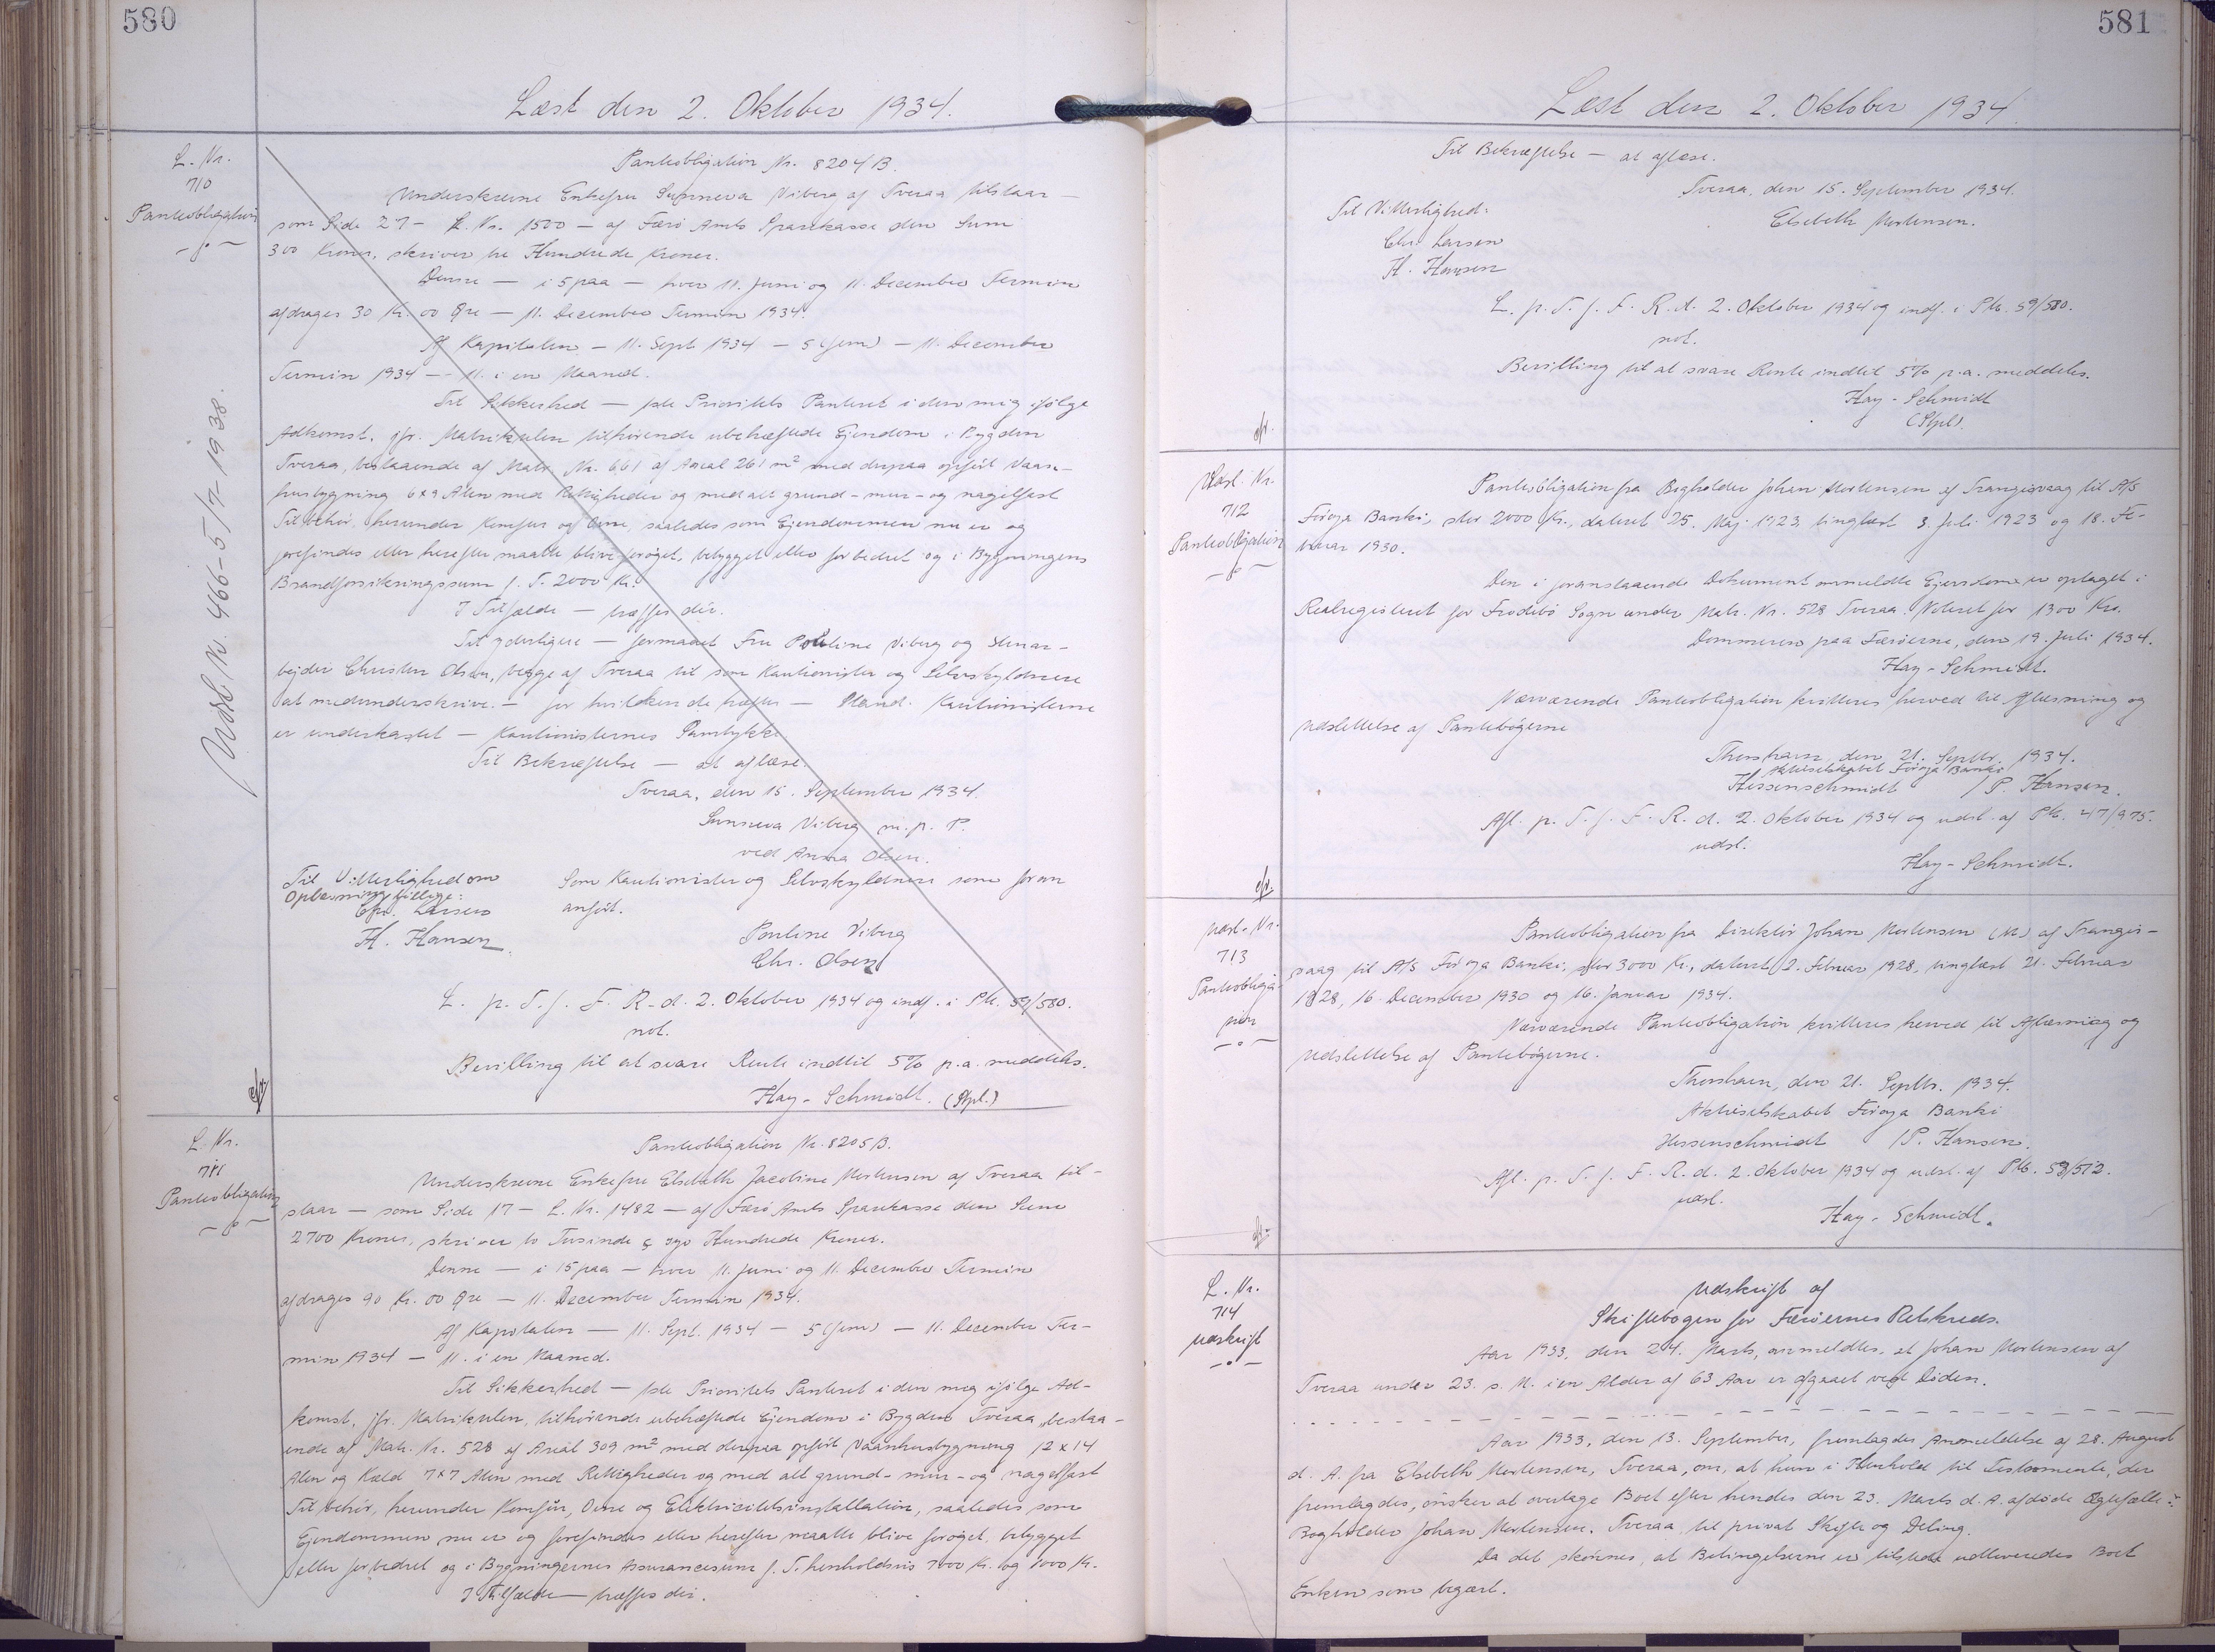 580
Læst den 2. Oktober 1934.
L. Nr.
710
Panteobligation
Udsl. Nr. 466-5/7-1938.
Panteobligation Nr. 8204 B.
Underskrevne Enkefru Sunneva Viberg af Tveraa tilstaar —
som Side 27 - L. Nr. 1500 — af Færø Amts Sparekasse den Sum
300 Kroner, skriver tre Hundrede Kroner.
Denne — i 5 paa — hver 11. Juni og 11. December Termin
afdrages 30 Kr. 00 Øre — 11. December Termin 1934.
Af Kapitalen — 11. Sept 1934 — 5 (fem) — 11. December
Termin 1934 — - 11. i en Maaned.
Til Sikkerhed — 1ste Prioritets Panteret i den mig ifølge
Adkomst, jfr. Matrikulen tilhørende ubehæftede Ejendom i Bygden
Tveraa, bestaaende af Matr. Nr. 661 af Areal 261 m² med derpaa opført Vaan-
husbygning 6x9 Alen med Rettigheder og med alt grund- mur- og nagelfast
Tilbehør, herunder Komfur og Ovne, saaledes som Ejendommen nu er og
forefindes eller herefter maatte blive forøget, bebygget eller forbedret og i Bygningens
Brandforsikringssum f. T. 2000 Kr.
I Tilfælde — træffes dér.
Til yderligere — formaaet Fru Pouline Viberg og
bejder Christen Olsen, begge af Tveraa til som Kautionister og Selvskyldnere
at medunderskrive. — for hvilken de hæfter — Stand. Kautionisterne
er underkastet — Kautionisternes Samtykke.
Til Bekræftelse — at aflæse.
Tveraa, den 15. September 1934.
Sunneva Viberg m. p. P.
ved Anna Olsen.
Til Vitterlighed om
Oplæsning tillige:
Chr. Larsen
H. Hansen
Som Kautionister og Selvskyldnere som foran
anført.
Pouline Viberg
Chr. Olsen
L. p. T. f. F. R. d. 2. Oktober 1934 og indf. i Ptb. 59/580.
not.
Bevilling til at svare Rente indtil 5% p.a. meddeles.
Hay-Schmidt. (Stpl.)
L. Nr.
711
Panteobligation
Panteobligation Nr. 8205 B.
Underskrevne Enkefru Elsebeth Jacobine Mortensen af Tveraa til-
staar — som Side 17 — L. Nr. 1482 — af Færø Amts Sparekasse den Sum
2700 Kroner, skriver to Tusinde & syv Hundrede Kroner.
Denne — i 15 paa — hver 11. Juni og 11. December Termin
afdrages 90 Kr. 00 Øre — 11. December Termin 1934.
Af Kapitalen — 11. Sept. 1934 — 5 (fem) — 11. December Ter-
min 1934 — 11. i en Maaned.
Til Sikkerhed — 1ste Prioritets Panteret i den mig ifølge Ad-
komst, jfr. Matrikulen, tilhørende ubehæftede Ejendom i Bygden Tveraa, bestaa-
ende af Matr. Nr. 528 af Areal 309 m² med derpaa opført Vaanhusbygning 12 x 14
Alen og Kæld 7x7 Alen med Rettigheder og med alt grund- mur- og nagelfast
Tilbehør, herunder Komfur, Ovne og Elektricitetsinstallation, saaledes som
Ejendommen nu er og forefindes eller herefter maatte blive forøget, bebygget
eller forbedret og i Bygningernes Assurancesum f. T. henholdsvis 7000 Kr. og 1000 Kr.
I Tilfælde — træffes dér.
581
Læst den 2. Oktober 1934
Til Bekræftelse — at aflæse.
Tveraa, den 15. September 1934.
Elsebeth Mortensen.
Til Vitterlighed:
Chr. Larsen
H. Hansen
L. p. T. f. F. R. d. 2. Oktober 1934 og indf. i Ptb. 59/580.
not.
Bevilling til at svare Rente indtil 5% p.a. meddeles.
Hay-Schmidt
(Stpl).
Udsl. Nr.
712
Panteobligation
Panteobligation fra Bogholder Johan Mortensen af Trangisvaag til A/S
Föroya Banki, stor 2000 Kr., dateret 25. Maj 1923, tinglæst 3. Juli 1923 og 18. Fe-
bruar 1930.
Den i foranstaaende Dokument ommeldte Ejendom er optaget i
Realregisteret for Frodebø Sogn under Matr. Nr. 528 Tveraa. Noteret for 1300 Kr.
Dommeren paa Færøerne, den 19. Juli 1934.
Hay-Schmidt.
Nærværende Panteobligation kvitteres herved til Aflæsning og
Udslettelse af Pantebøgerne
Thorshavn, den 21. Septbr. 1934.
Aktieselskabet Föroya Banki
Hessenschmidt / P. Hansen.
Afl. p. T. f. F. R. d. 2. Oktober 1934 og udsl. af Ptb. 47/975.
udsl.
Hay-Schmidt.
Udsl. Nr.
713
Panteobliga-
tion
Panteobligation fra Direktør Johan Mortensen (M) af Trangis-
vaag til A/S Föroya Banki, stor 3000 Kr., dateret 2. Februar 1928, tinglæst 21. Februar
1928, 16. December 1930 og 16. Januar 1934.
Nærværende Panteobligation kvitteres herved til Aflæsning og
Udslettelse af Pantebøgerne.
Thorshavn, den 21. Septbr. 1934.
Aktieselskabet Föroya Banki
Hessenschmidt / P. Hansen.
Afl. p. T. f. F. R. d. 2. Oktober 1934 og udsl. af Ptb. 53/512.
udsl.
Hay-Schmidt.
L. Nr.
714
Udskrift
Udskrift af
Skiftebogen for Færøernes Retskreds.
Aar 1933, den 24. Marts, anmeldtes, at Johan Mortensen af
Tveraa under 23. s. M. i en Alder af 63 Aar er afgaaet ved Døden.
Aar 1933, den 13. September, fremlagdes Anmeldelse af 28. August
d. A. fra Elsebeth Mortensen, Tveraa, om, at hun i Henhold til Testamente, der
fremlagdes, ønsker at overtage Boet efter hendes den 23. Marts d. A. afdøde Ægtefælle
Bogholder Johan Mortensen, Tveraa til privat Skifte og Deling.
Da det skønnes, at Betingelserne er tilstede udleveredes Boet
Enken som begært.